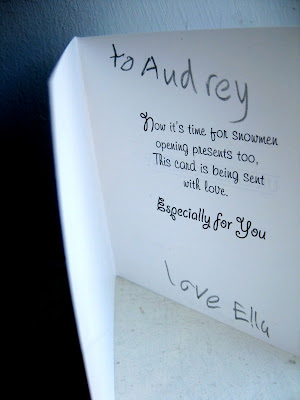 to Audrey
Now it's time for snowmen
opening presents too,
This card is being sent
with love.
Especially for You
love Ella